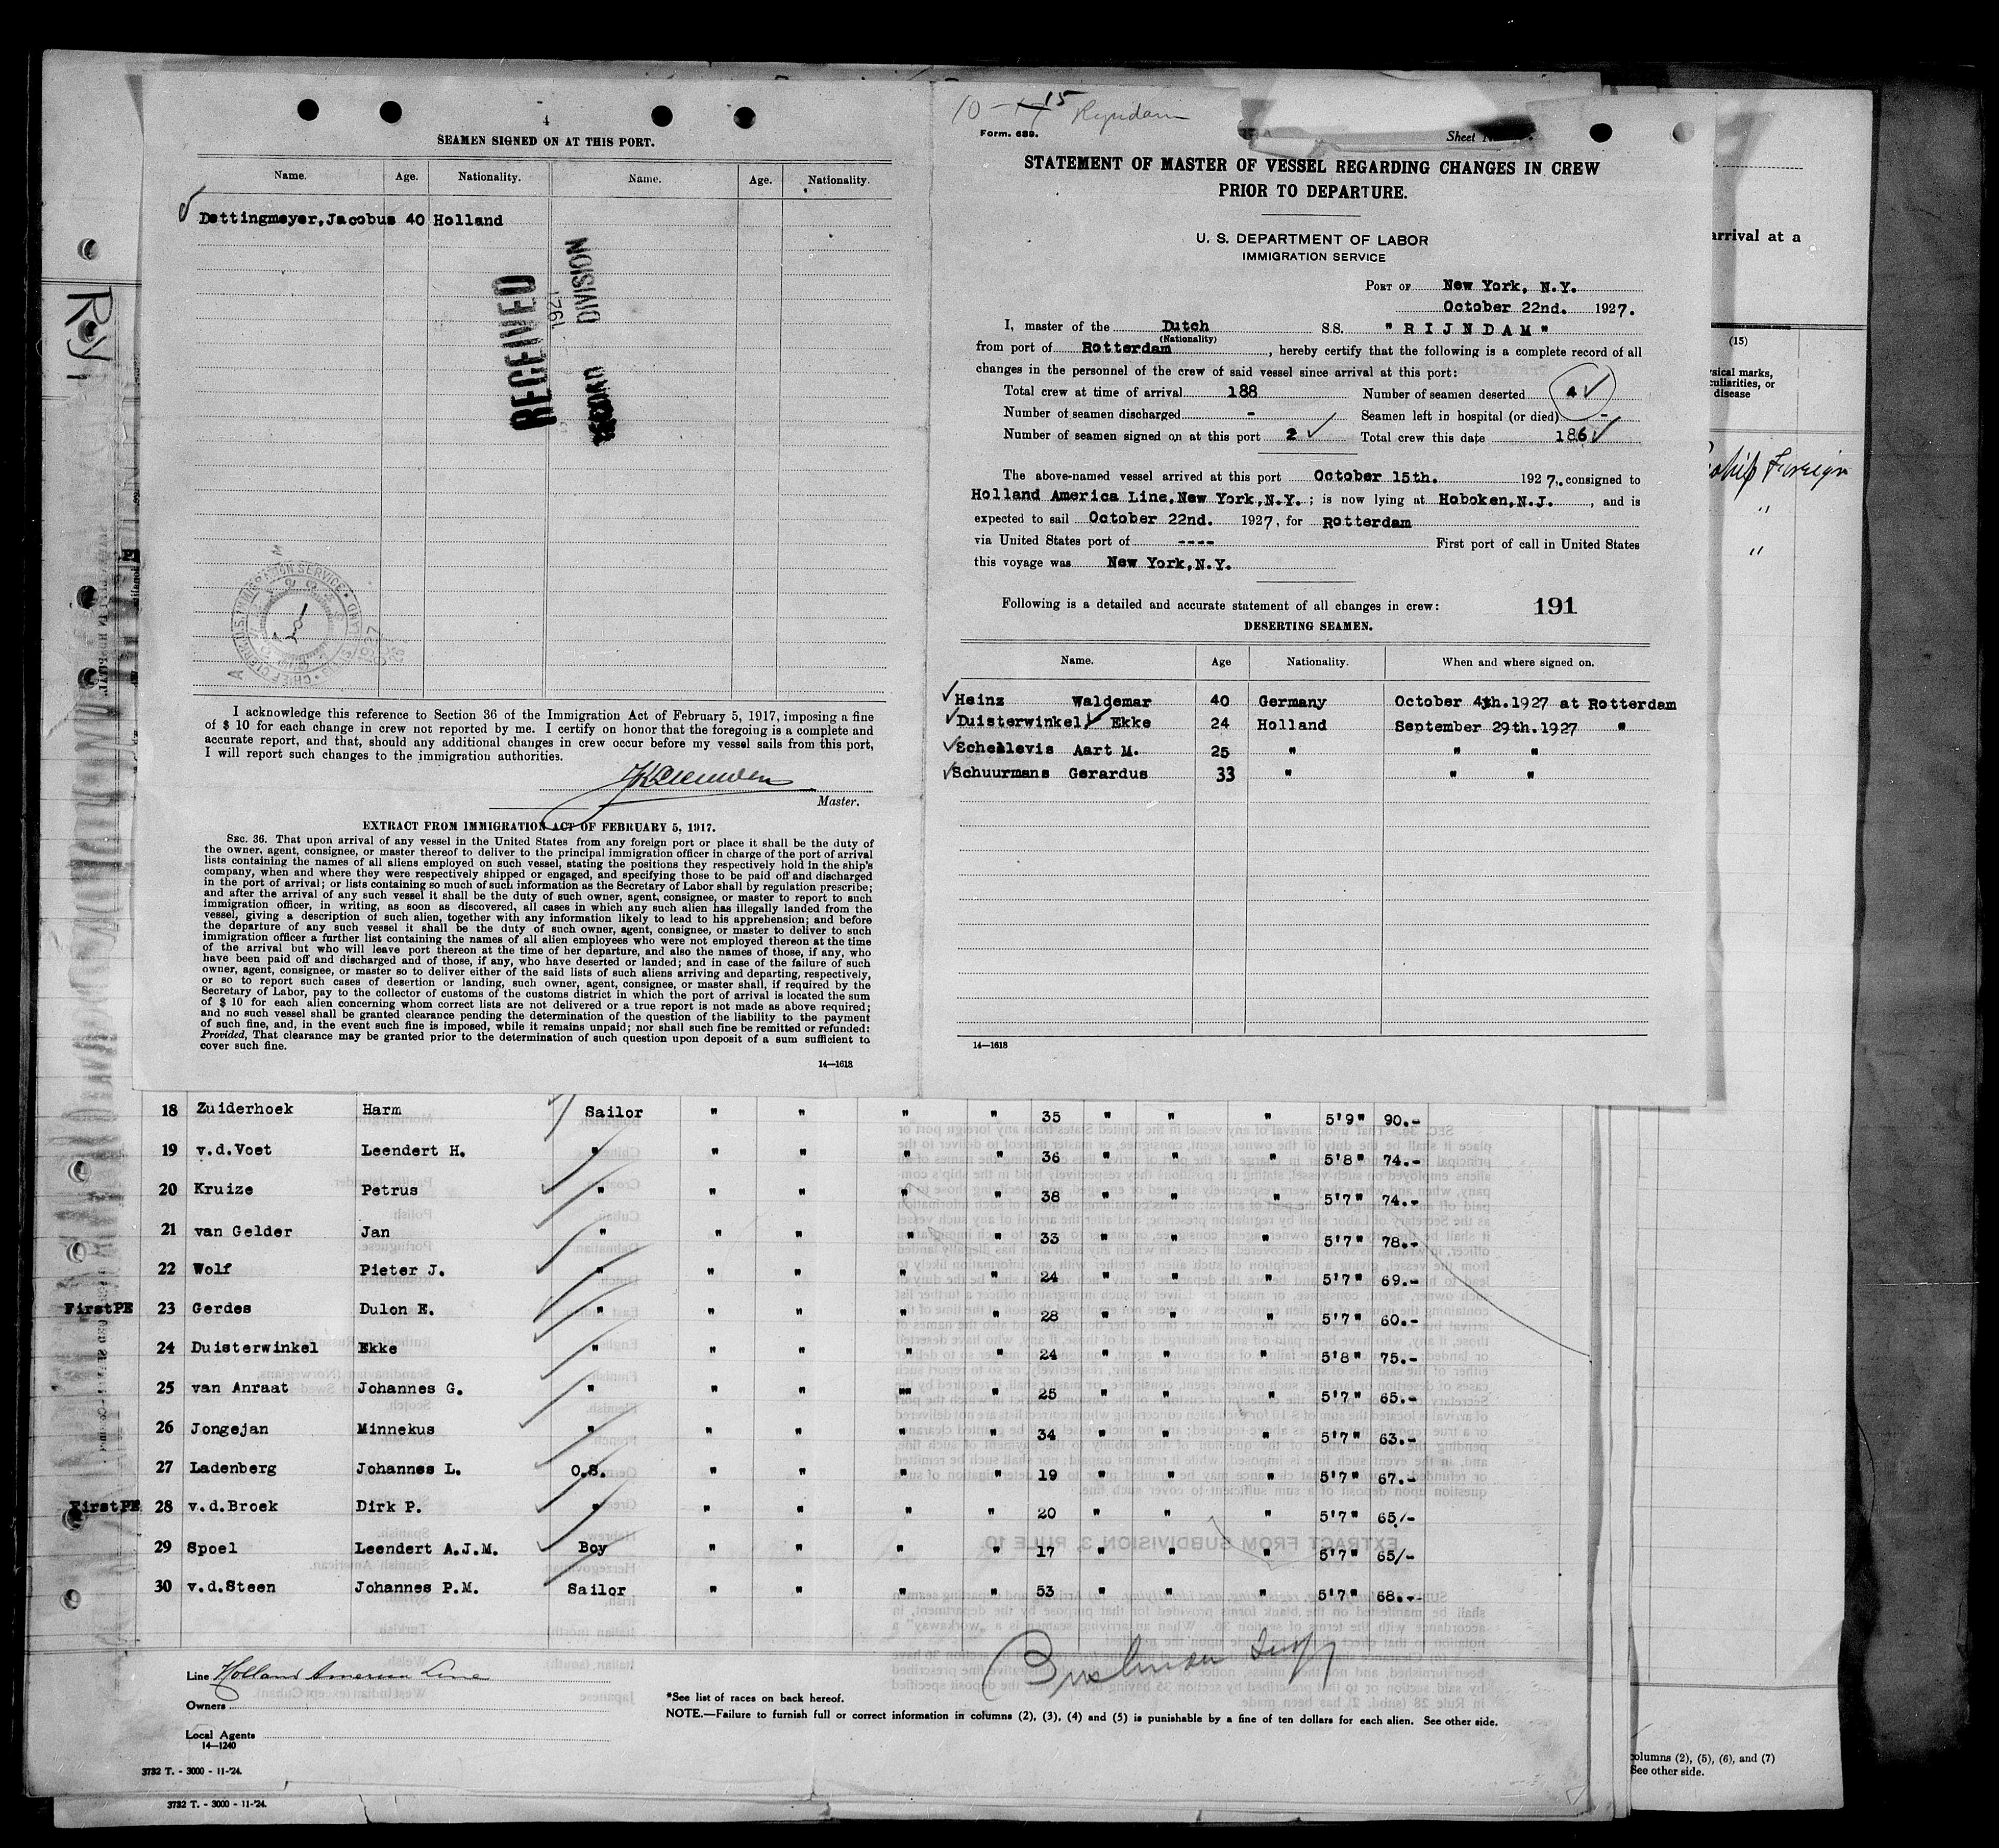 4
SEAMEN SIGNED ON AT THIS PORT.
Name. Age. Nationality. Name. Age. Nationality.
Dettingmeyer,Jacobus 40 Holland
RECEIVED
DIVISION
I acknowledge this reference to Section 36 of the Immigration Act of February 5, 1917, imposing a fine
of $ 10 for each change in crew not reported by me. I certify on honor that the foregoing is a complete and
accurate report, and that, should any additional changes in crew occur before my vessel sails from this port,
I will report such changes to the immigration authorities.
Master.
EXTRACT FROM IMMIGRATION ACT OF FEBRUARY 5, 1917.
SEC. 36. That upon arrival of any vessel in the United States from any foreign port or place it shall be the duty of
the owner, agent, consignee, or master thereof to deliver to the principal immigration officer in charge of the port of arrival
lists containing the names of all aliens employed on such vessel, stating the positions they respectively hold in the ship's
company, when and where they were respectively shipped or engaged, and specifying those to be paid off and discharged
in the port of arrival; or lists containing so much of such information as the Secretary of Labor shall by regulation prescribe;
and after the arrival of any such vessel it shall be the duty of such owner, agent, consignee, or master to report to such
immigration officer, in writing, as soon as discovered, all cases in which any such alien has illegally landed from the
vessel, giving a description of such alien, together with any information likely to lead to his apprehension; and before
the departure of any such vessel it shall be the duty of such owner, agent, consignee, or master to deliver to such
immigration officer a further list containing the names of all alien employees who were not employed thereon at the time
of the arrival but who will leave port thereon at the time of her departure, and also the names of those, if any, who
have been paid off and discharged and of those, if any, who have deserted or landed; and in case of the failure of such
owner, agent, consignee, or master so to deliver either of the said lists of such aliens arriving and departing, respectively,
or so to report such cases of desertion or landing, such owner, agent, consignee, or master shall, if required by the
Secretary of Labor, pay to the collector of customs of the customs district in which the port of arrival is located the sum
of $ 10 for each alien concerning whom correct lists are not delivered or a true report is not made as above required;
and no such vessel shall be granted clearance pending the determination of the question of the liability to the payment
of such fine, and, in the event such fine is imposed, while it remains unpaid; nor shall such fine be remitted or refunded:
Provided, That clearance may be granted prior to the determination of such question upon deposit of a sum sufficient to
cover such fine.
14—1618
10 - 15 Ryndam
Form. 689. Sheet
STATEMENT OF MASTER OF VESSEL REGARDING CHANGES IN CREW
PRIOR TO DEPARTURE.
U. S. DEPARTMENT OF LABOR
IMMIGRATION SERVICE
PORT OF New York, N.Y.
October 22nd. 1927.
I, master of the Dutch S.S. "RIJNDAM"
(Nationality)
from port of Rotterdam, hereby certify that the following is a complete record of all
changes in the personnel of the crew of said vessel since arrival at this port:
Total crew at time of arrival 188 Number of seamen deserted 4
Number of seamen discharged - Seamen left in hospital (or died) -
Number of seamen signed on at this port 2 Total crew this date 186
The above-named vessel arrived at this port October 15th. 1927., consigned to
Holland America Line,New York,N.Y. ; is now lying at Hoboken,N.J. , and is
expected to sail October 22nd. 1927, for Rotterdam
via United States port of ---- First port of call in United States
this voyage was New York,N.Y.
Following is a detailed and accurate statement of all changes in crew: 191
DESERTING SEAMEN.
Name. Age Nationality. When and where signed on.
Heinz Waldemar 40 Germany October 4th.1927 at Rotterdam
Duisterwinkel Ekke 24 Holland September 29th.1927 "
Schellevis Aart M. 25 " " "
Schuurmans Gerardus 33 " " "
14—1618
arrival at a
(15)
sical marks,
culiarities, or
disease
Foreign
"
"
Ry
18 Zuiderhoek Harm Sailor " " " " 35 " " " 5'9" 90.-
19 v.d.Voet Leendert H. " " " " " 36 " " " 5'8" 74.-
20 Kruize Petrus " " " " " 38 " " " 5'7" 74.-
21 van Gelder Jan " " " " " 33 " " " 5'7" 78.-
22 Wolf Pieter J. " " " " " 24 " " " 5'7" 69.-
FirstPE 23 Gerdes Dulon E. " " " " " 28 " " " 5'7" 60.-
24 Duisterwinkel Ekke " " " " " 24 " " " 5'8" 75.-
25 van Anraat Johannes G. " " " "" " 25 " " " 5'7" 65.-
26 Jongejan Minnekus " " " " " 34 " " " 5'7" 63.-
27 Ladenberg Johannes L. O.S. " " " " 19 " " " 5'7" 67.-
FirstPE 28 v.d.Broek Dirk P. " " " " " 20 " " " 5'7" 65/-
29 Spoel Leendert A.J.M. Boy " " " " 17 " " " 5'7" 65/-
30 v.d.Steen Johannes P.M. Sailor " " " " 53 " " " 5'7" 68.--
Line Holland America Line
Owners
Local Agents
14—1240
*See list of races on back hereof.
NOTE.—Failure to furnish full or correct information in columns (2), (3), (4) and (5) is punishable by a fine of ten dollars for each alien. See other side.
3732 T. - 3000 - 11-'24.
3732 T. - 3000 - 11-'24.
columns (2), (5), (6), and (7)
See other side.